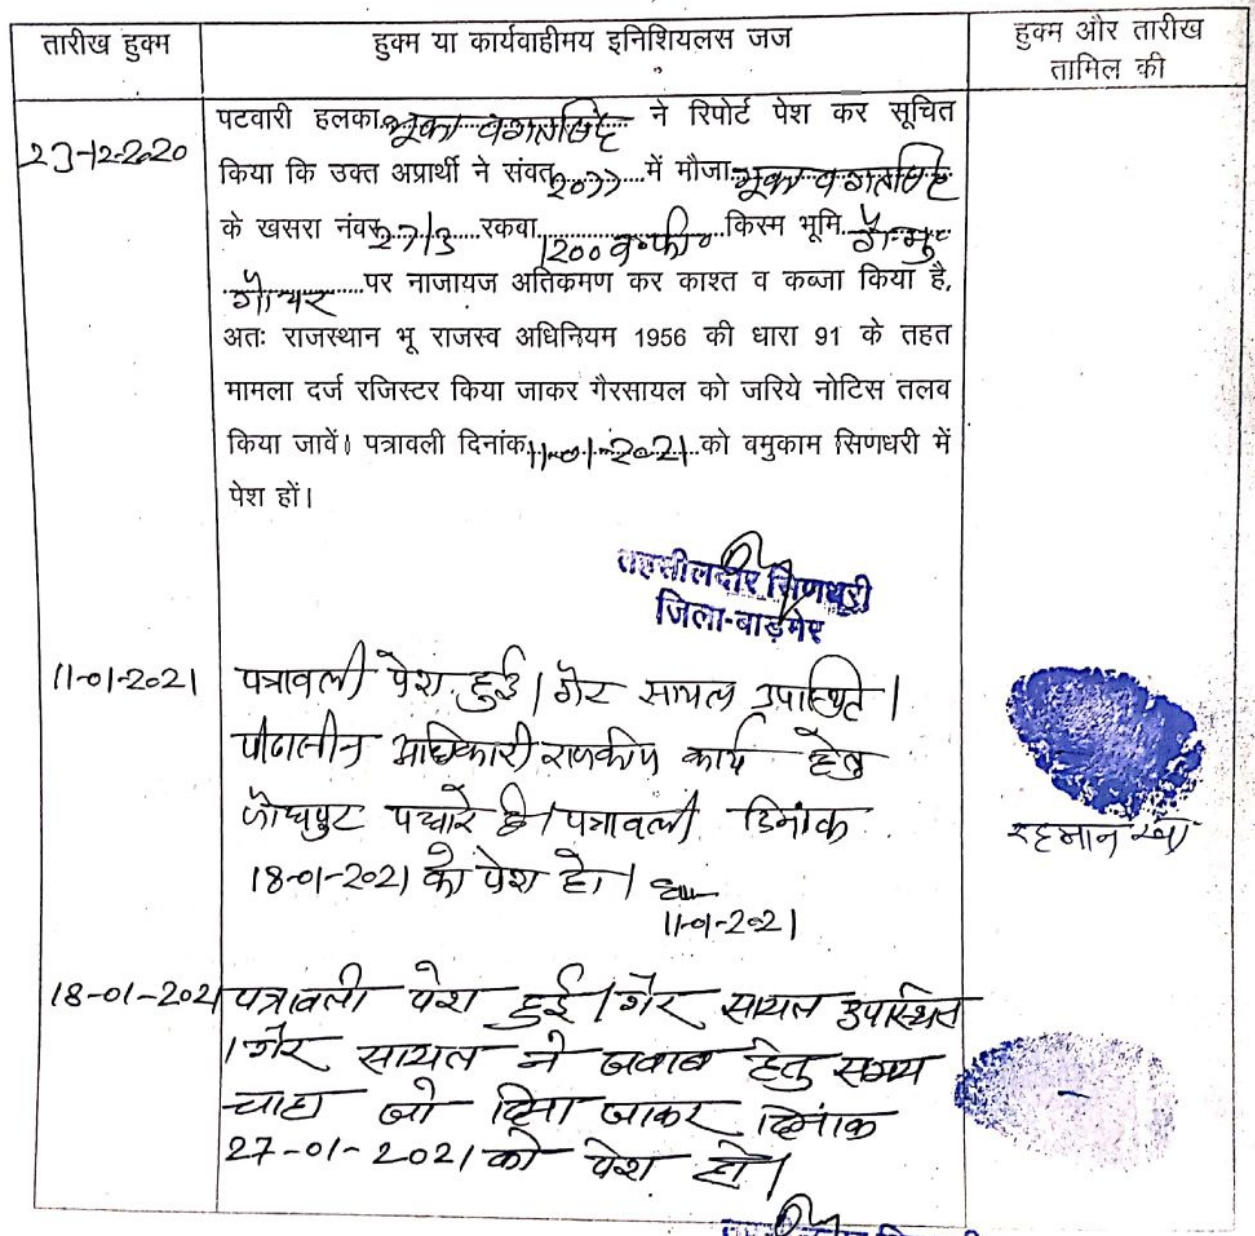 तारीख हुक्म
हुक्म या कार्यवाहीमय इनिशियलस जज
हुक्म और तारीख
तामिल की
23-12-2020
पटवारी हलका भूका भगतसिंह ने रिपोर्ट पेश कर सूचित
किया कि उक्त अप्रार्थी ने संवत् 2077 में मौजा भूका भगतसिंह
के खसरा नंबर 27/3 रकवा 1200 व.फी. किस्म भूमि गै.मु.
गोचर पर नाजायज अतिकमण कर काश्त व कब्जा किया है,
अतः राजस्थान भू राजस्व अधिनियम 1956 की धारा 91 के तहत
मामला दर्ज रजिस्टर किया जाकर गैरसायल को जरिये नोटिस तलव
किया जावें। पत्रावली दिनांक 11-01-2021 को वमुकाम सिणधरी में
पेश हों।
तहसीलदार सिणधरी
जिला-बाड़मेर
11-01-2021
पत्रावली पेश हुई। गैर सायल उपस्थित।
पीठासीन अधिकारी राजकीय कार्य हेतु
जोधपुर पधारे है। पत्रावली दिनांक
18-01-2021 को पेश हो।
11-01-2021
रहमान खां
18-01-2021
पत्रावली पेश हुई। गैर सायल उपस्थित
। गैर सायल ने जवाब हेतु समय
चाहा जो दिया जाकर दिनांक
27-01-2021 को पेश हो।